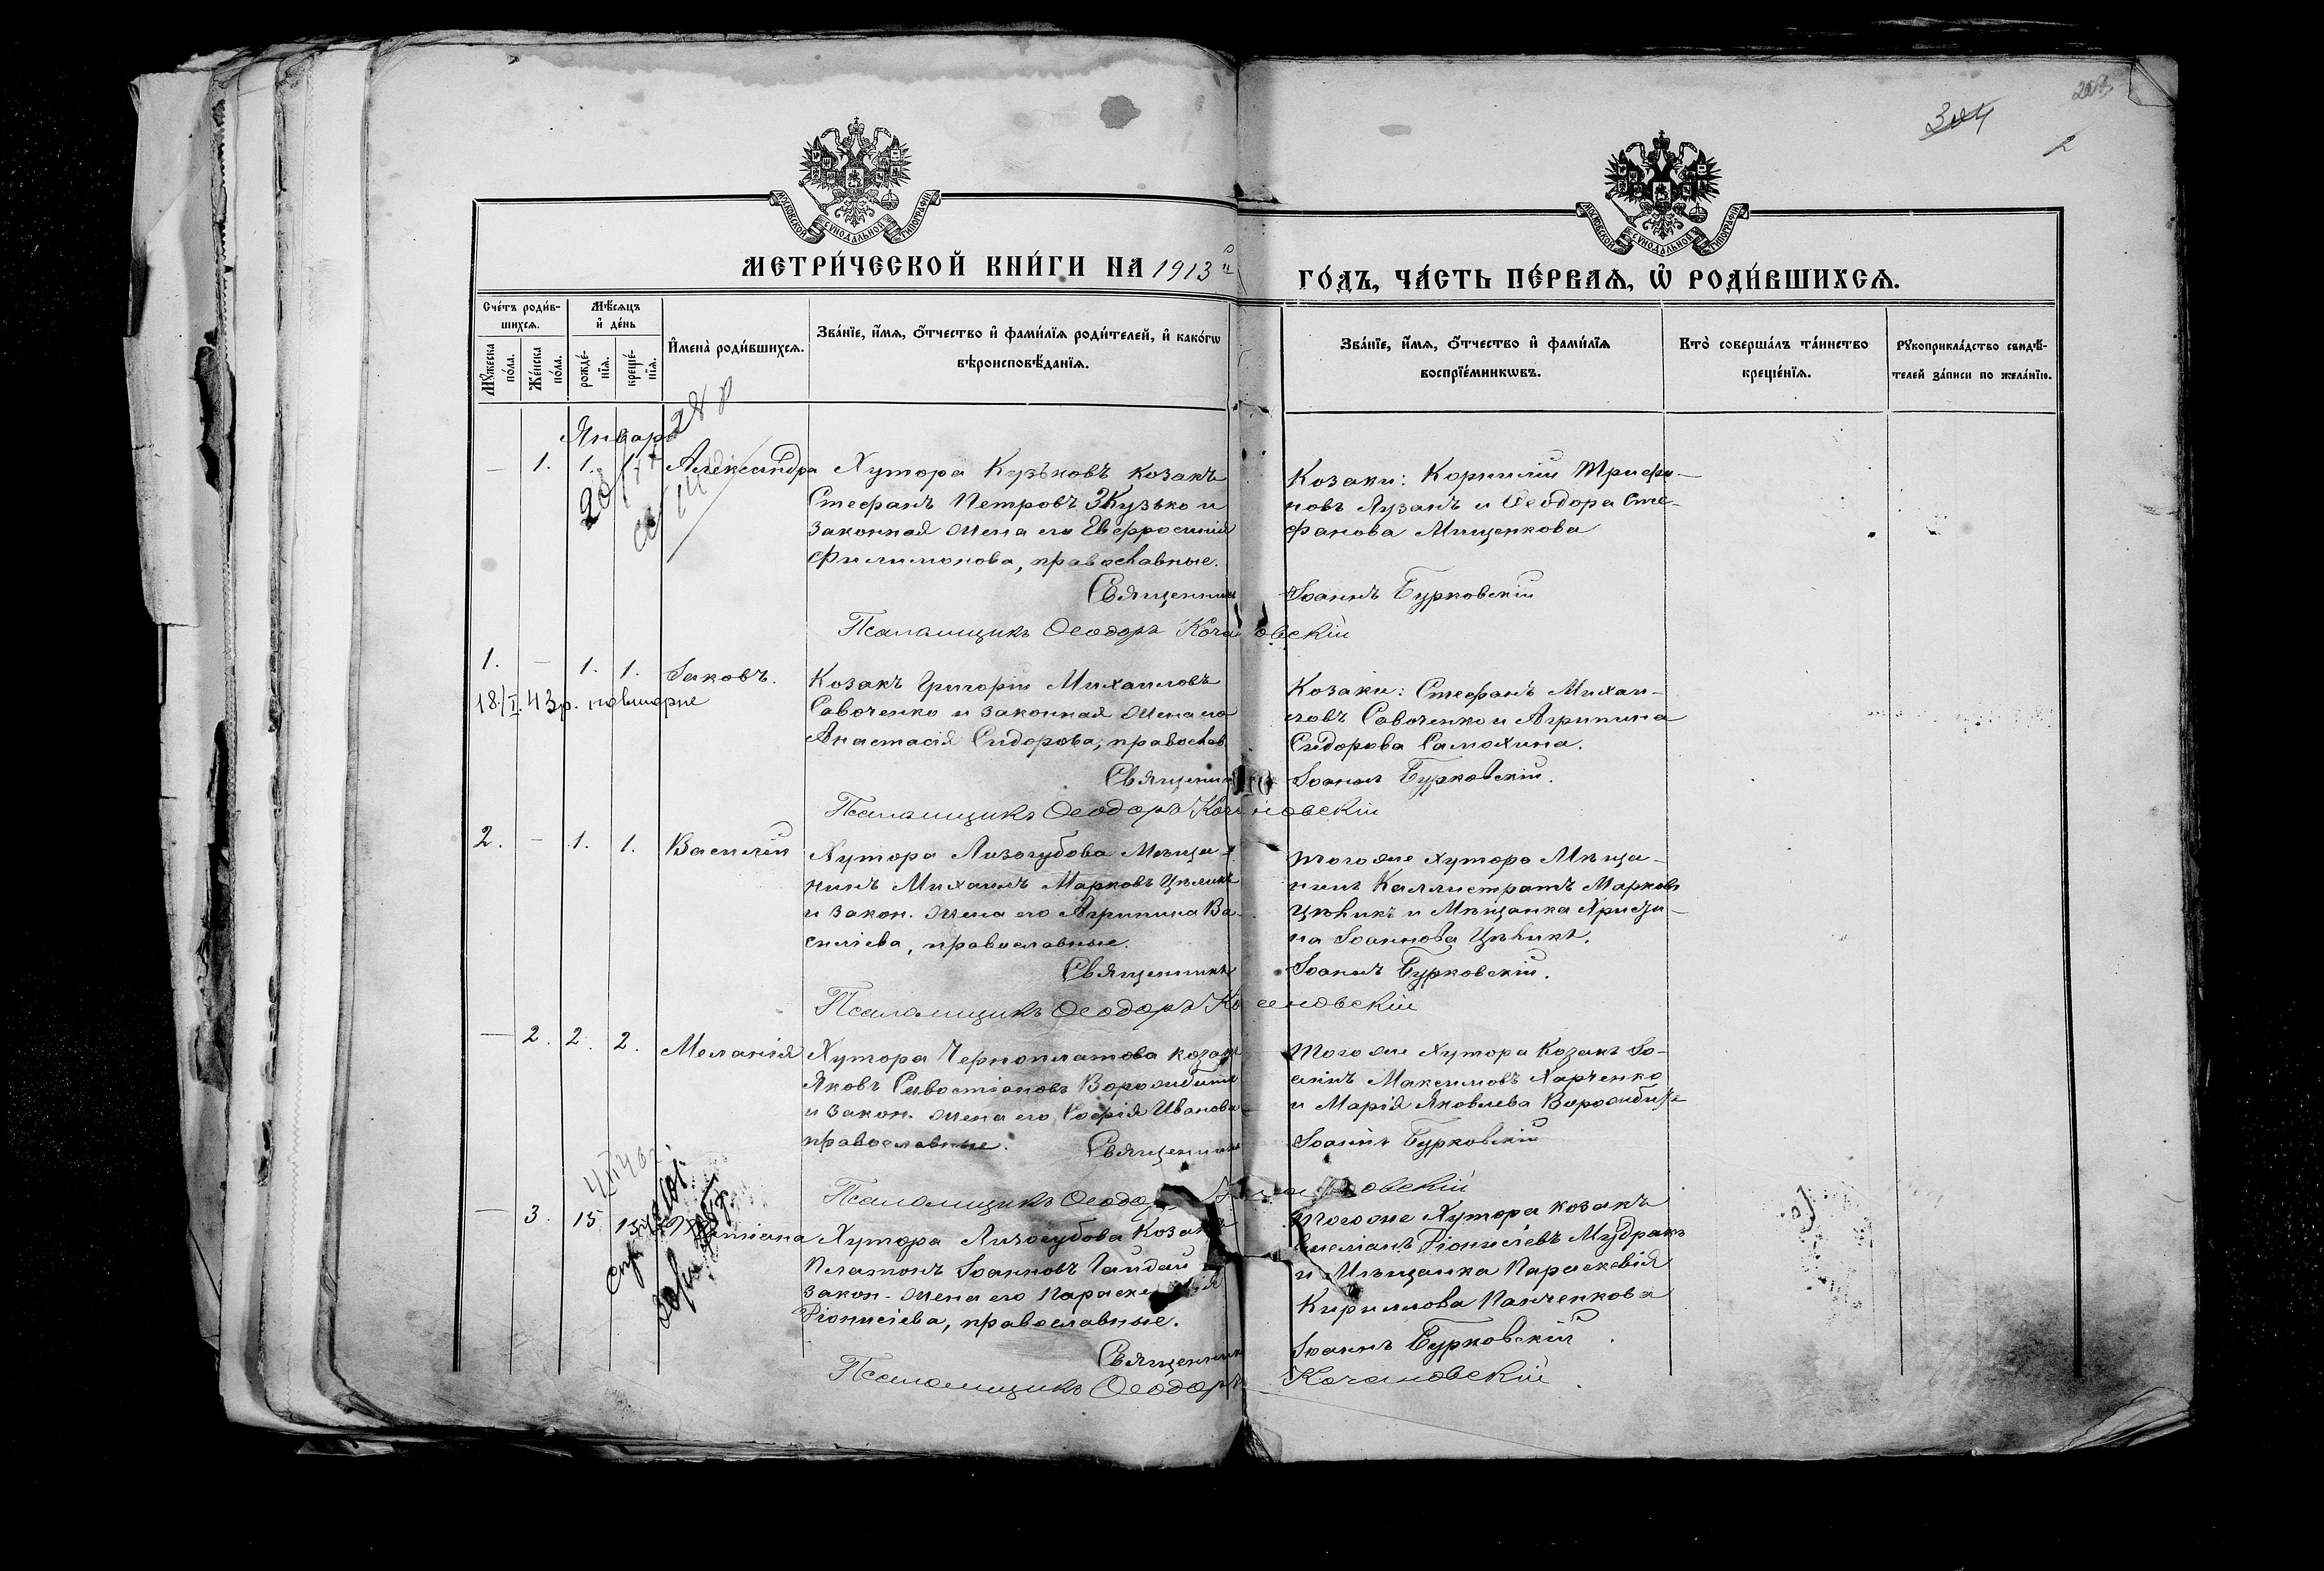 304
203
2
МОСКОВСКОЙ СѴНОДАЛЬНОЙ ТИПОГРАФІИ
МОСКОВСКОЙ СѴНОДАЛЬНОЙ ТИПОГРАФІИ
МЕТРИ́ЧЕСКОЙ КНИ́ГИ НА 1913й ГО́ДЪ, ЧА́СТЬ ПЕ́РВАѦ, Ѡ҆ РОДИ́ВШИХСѦ.
Сче́тъ роди́в-
шихсѧ.
Мꙋ́жеска по́ла.
Же́нска по́ла.
Мѣ́сѧцъ
и҆ де́нь
рожде́-
нїѧ.
креще́-
нїѧ.
И҆мена̀ роди́вшихсѧ.
Зва́нїе, и҆́мѧ, ѻ҆́тчество и҆ фами́лїѧ роди́телей, и҆ како́гѡ
вѣроисповѣ́данїѧ.
Зва́нїе, и҆́мѧ, ѻ҆́тчество и҆ фами́лїѧ
воспрїе́мникѡвъ.
Кто̀ соверша́лъ та́инство
креще́нїѧ.
Рꙋкоприкла́дство свидѣ́-
телей за́писи по жела́нїю.
Январь
— 1. 1. 1. Александра
Хутора Кузьковъ козакъ
Стефанъ Петровъ Кузько и
законная жена его Евфросинія
Филимонова, православные.
Козаки: Корнилій Трифо-
новъ Лузанъ и Ѳеодора Сте-
фанова Мищенкова
Священникъ Іоаннъ Бурковскій
Псаломщикъ Ѳеодоръ Кочановскій
1. — 1. 1. Іаковъ.
18/I 43р. повторне
Козакъ Григорій Михаиловъ
Савоченко и законная жена его
Анастасія Сидорова, православ.
Козаки: Стефанъ Михаи-
ловъ Савоченко и Агрипина
Сидорова Самохина.
Священникъ Іоаннъ Бурковскій.
Псаломщикъ Ѳеодоръ Кочановскій
2. — 1. 1. Василій
Хутора Лизогубова Мѣща-
нинъ Михаилъ Марковъ Цѣликъ
и закон. жена его Агрипина Ва-
силіева, православные.
того же хутора Мѣща-
нинъ Каллистратъ Марковъ
Цѣликъ и Мѣщанка Христи-
на Іоаннова Цѣликъ.
Священникъ Іоаннъ Бурковскій.
Псаломщикъ Ѳеодоръ Кочановскій
— 2. 2. 2. Меланія
Хутора Черноплатова козакъ
Яковъ Савостіановъ Ворожбитъ
и закон. жена его Софія Иванова
православные.
того же хутора Козакъ Іо-
акимъ Максимовъ Харченко
и Марія Яковлева Ворожбитъ
Священникъ Іоаннъ Бурковскій
Псаломщикъ Ѳеодоръ Кочановскій
— 3. 15. 15. Татіана
Хутора Лизогубова Козакъ
Платонъ Іоанновъ Гайдай
закон. жена его Параскевія
Діонисіева, православные.
того же Хутора козакъ
Емеліанъ Діонисіевъ Мудракъ
и Мѣщанка Параскевія
Кириллова Панченкова
Священникъ Іоаннъ Бурковскій.
Псаломщикъ Ѳеодоръ Кочановскій